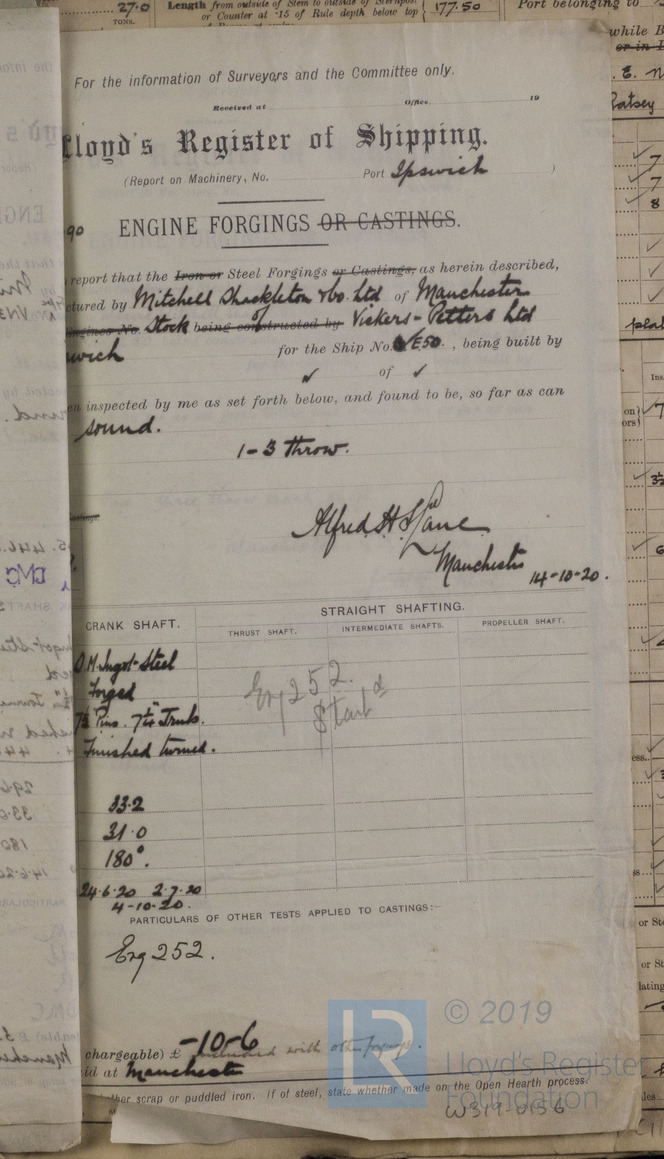 27.0
TONS.
Length from outside of Stem to outside of Sternpost
or Counter at ·15 of Rule depth below top
177.50
Port belonging to
while B
or in
E. N
Ratsey
For the information of Surveyors and the Committee only.
Received at Office. 19
Lloyd's Register of Shipping.
(Report on Machinery, No. Port Ipswich )
90 ENGINE FORGINGS OR CASTINGS.
report that the Iron or Steel Forgings or Castings, as herein described,
ctured by Mitchell Shackleton & Co. Ltd of Manchester
Engines No. Stock being constructed by of Vickers-Petters Ltd
wich for the Ship No. VE50. , being built by
✓ of ✓
en inspected by me as set forth below, and found to be, so far as can
sound.
1-3 throw.
Castings.
Alfred H.
Manchester
14-10-20.
STRAIGHT SHAFTING.
CRANK SHAFT. THRUST SHAFT. INTERMEDIATE SHAFTS. PROPELLER SHAFT.
O.M. Ingot-Steel
Forged
Eng 252.
Finished turned.
33.2
31.0
180°.
24.6.20 2.7.20
4-10-20.
PARTICULARS OF OTHER TESTS APPLIED TO CASTINGS:-
Eng 252.
chargeable) £ -10-6 included with other forgings.
id at Manchester
ther scrap or puddled iron. If of steel, state whether made on the Open Hearth process.
LR
© 2019
Lloyd's Register
Foundation
W319-0156